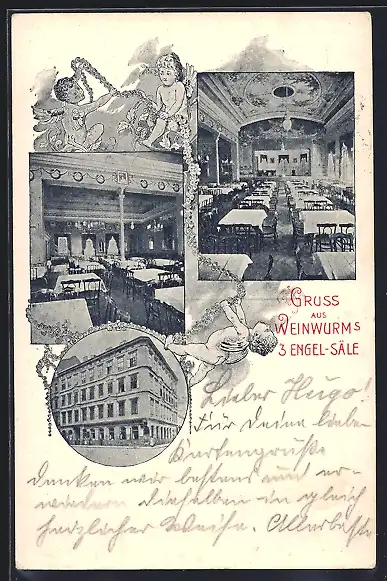 GRUSS
AUS
WEINWURMS
3 ENGEL-SÄLE
Lieber Hugo!
Für Deine liebe
Kartengrüße
danken wir bestens und er-
wiedern dieselben in gleich
herzlicher Weise. Allerbeste